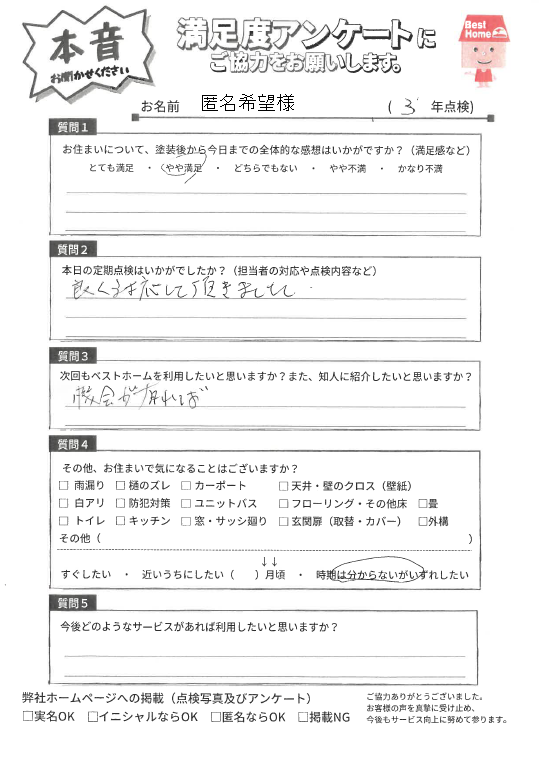 本音
お聞かせください
満足度アンケートに
ご協力をお願いします。
Best
Home
お名前 匿名希望様 ( 3 年点検)
質問1
お住まいについて、塗装後から今日までの全体的な感想はいかがですか？（満足感など）
とても満足 ・ やや満足 ・ どちらでもない ・ やや不満 ・ かなり不満
質問2
本日の定期点検はいかがでしたか？（担当者の対応や点検内容など）
良く対応して頂きました
質問3
次回もベストホームを利用したいと思いますか？また、知人に紹介したいと思いますか？
機会が有れば
質問4
その他、お住まいで気になることはございますか？
□ 雨漏り □ 樋のズレ □ カーポート □ 天井・壁のクロス（壁紙）
□ 白アリ □ 防犯対策 □ ユニットバス □ フローリング・その他床 □畳
□ トイレ □ キッチン □ 窓・サッシ廻り □ 玄関扉（取替・カバー） □外構
その他（ ）
↓↓
すぐしたい ・ 近いうちにしたい（ ）月頃 ・ 時期は分からないがいずれしたい
質問5
今後どのようなサービスがあれば利用したいと思いますか？
弊社ホームページへの掲載（点検写真及びアンケート）
□実名OK □イニシャルならOK □匿名ならOK □掲載NG
ご協力ありがとうございました。
お客様の声を真摯に受け止め、
今後もサービス向上に努めて参ります。